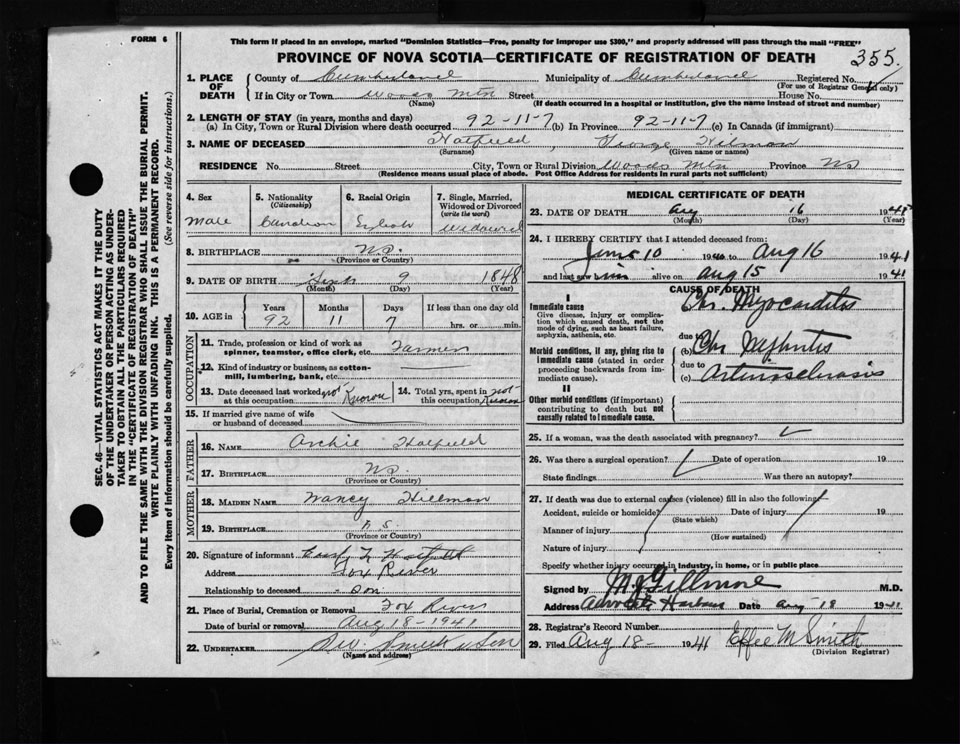 FORM 6
This form if placed in an envelope, marked "Dominion Statistics—Free, penalty for improper use $300," and properly addressed will pass through the mail "FREE"
PROVINCE OF NOVA SCOTIA—CERTIFICATE OF REGISTRATION OF DEATH
355.
SEC. 46—VITAL STATISTICS ACT MAKES IT THE DUTY
OF THE UNDERTAKER OR PERSON ACTING AS UNDER-
TAKER TO OBTAIN ALL THE PARTICULARS REQUIRED
IN THE "CERTIFICATE OF REGISTRATION OF DEATH"
AND TO FILE THE SAME WITH THE DIVISION REGISTRAR WHO SHALL ISSUE THE BURIAL PERMIT.
WRITE PLAINLY WITH UNFADING INK. THIS IS A PERMANENT RECORD.
Every item of Information should be carefully supplied. (See reverse side for instructions.)
1. PLACE OF DEATH
County of Cumberland Municipality of Cumberland Registered No.
(For use of Registrar General only)
If in City or Town Woods Mtn Street House No.
(Name) (If death occurred in a hospital or institution, give the name instead of street and number)
2. LENGTH OF STAY (in years, months and days)
(a) In City, Town or Rural Division where death occurred 92-11-7 (b) In Province 92-11-7 (c) In Canada (if immigrant)
3. NAME OF DECEASED Hatfield, George Hilman
(Surname) (Given name or names)
RESIDENCE No. Street City, Town or Rural Division Woods Mtn Province NS
(Residence means usual place of abode. Post Office Address for residents in rural parts not sufficient)
4. Sex
Male
5. Nationality
(Citizenship)
Canadian
6. Racial Origin
English
7. Single, Married,
Widowed or Divorced
(write the word)
Widowed
8. BIRTHPLACE NS.
(Province or Country)
9. DATE OF BIRTH Sept 9 1848
(Month) (Day) (Year)
10. AGE in
Years Months Days If less than one day old
92 11 7 hrs. or min.
OCCUPATION
11. Trade, profession or kind of work as
spinner, teamster, office clerk, etc. Farmer
12. Kind of industry or business, as cotton-
mill, lumbering, bank, etc.
13. Date deceased last worked
at this occupation not Known
14. Total yrs. spent in
this occupation not Known
15. If married give name of wife
or husband of deceased
FATHER
16. NAME Archie Hatfield
17. BIRTHPLACE NS.
(Province or Country)
MOTHER
18. MAIDEN NAME Nancy Hillman
19. BIRTHPLACE N S.
(Province or Country)
20. Signature of informant
Address Fox River
Relationship to deceased Son
21. Place of Burial, Cremation or Removal Fox River
Date of burial or removal Aug 18-1941
22. UNDERTAKER Smith & Son
(Name and Address)
MEDICAL CERTIFICATE OF DEATH
23. DATE OF DEATH Aug 16 1941
(Month) (Day) (Year)
24. I HEREBY CERTIFY that I attended deceased from:
June 10 1940 to Aug 16 1941
and last saw him alive on Aug 15 1941
CAUSE OF DEATH
I
Immediate cause
Give disease, injury or complica-
tion which caused death, not the
mode of dying, such as heart failure,
asphyxia, asthenia, etc.
Chr. Myocarditis
due to
Morbid conditions, if any, giving rise to
immediate cause (stated in order
proceeding backwards from im-
mediate cause).
(b) Chr Nephritis
due to
(c) Arteriosclerosis
II
Other morbid conditions (if important)
contributing to death but not
causally related to immediate cause.
25. If a woman, was the death associated with pregnancy?
26. Was there a surgical operation? Date of operation 19
State findings Was there an autopsy?
27. If death was due to external causes (violence) fill in also the following:
Accident, suicide or homicide? Date of injury 19
(State which)
Manner of injury
(How sustained)
Nature of injury
Specify whether injury occurred in industry, in home, or in public place
Signed by M. J. Gillmore M.D.
Address Advocate Harbour Date Aug-18 1941
28. Registrar's Record Number
29. Filed Aug 18- 1941 Effee M Smith
(Division Registrar)